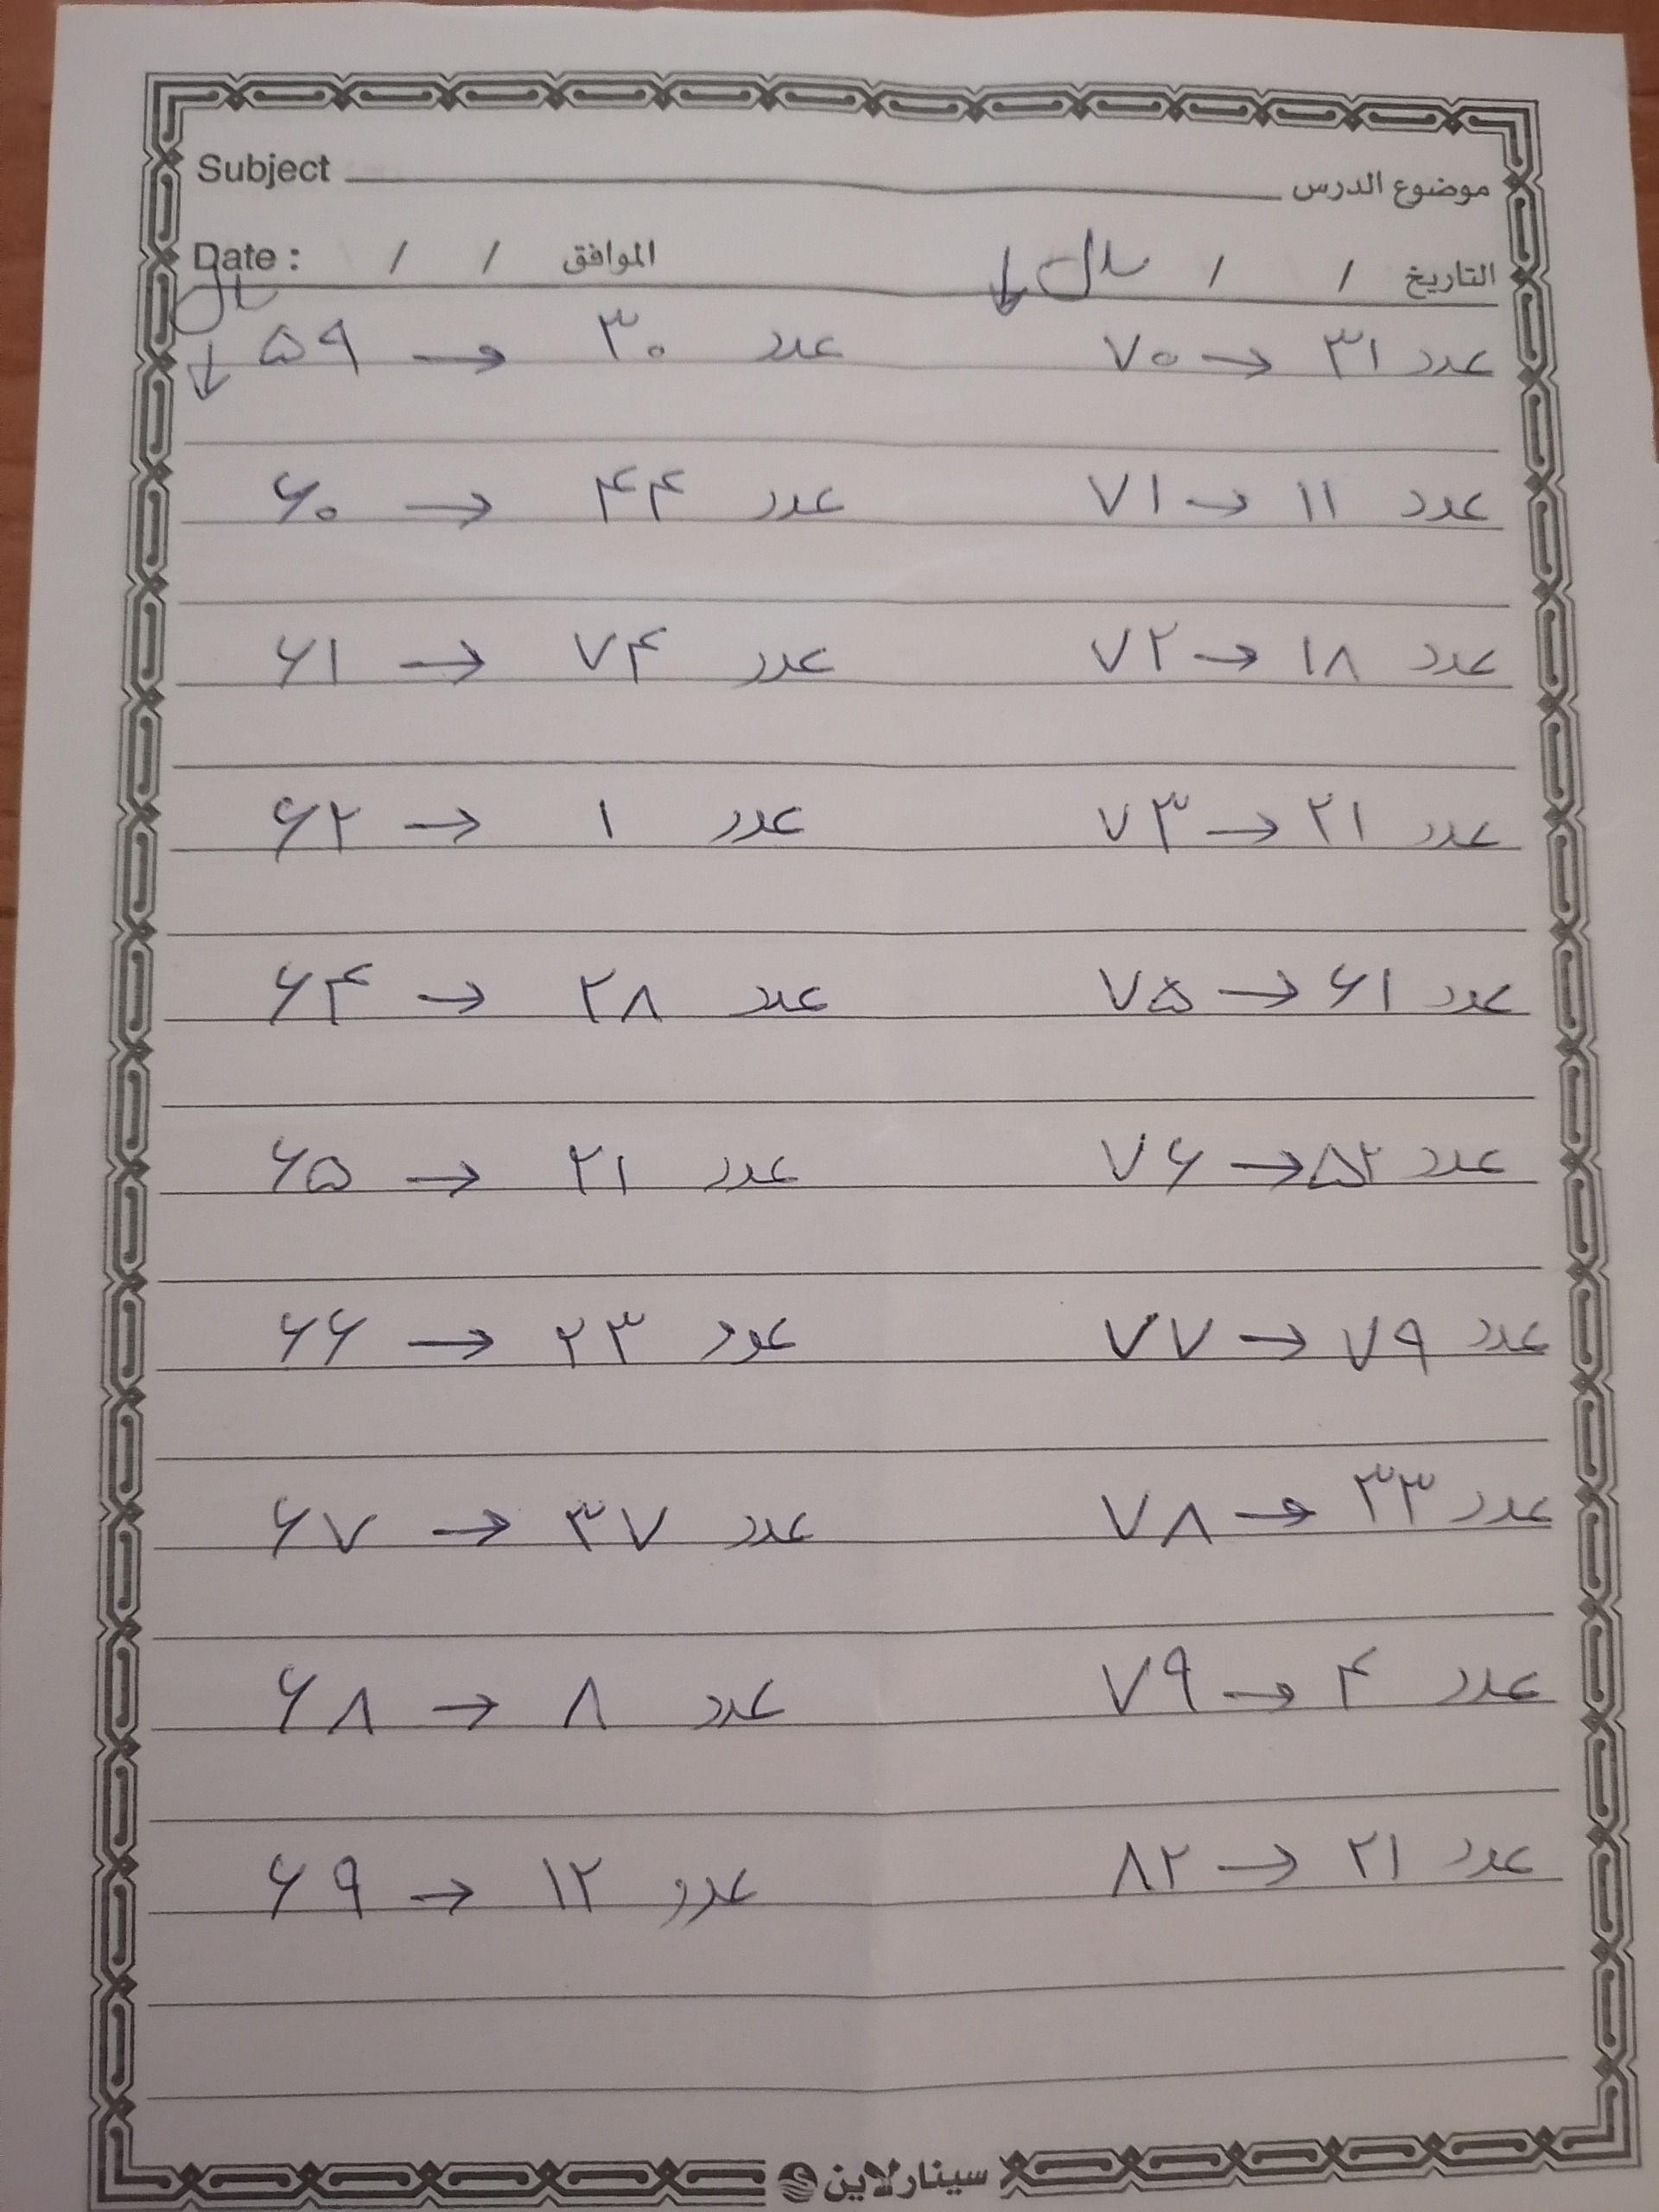 Subject موضوع الدرس
Date : / / الموافق سال ↓ / / التاريخ
سال ↓
۷۰ → ۳۱ عدد
۵۹ → ۳۰ عدد
۷۱ → ۱۱ عدد
۶۰ → ۴۴ عدد
۷۲ → ۱۸ عدد
۶۱ → ۷۴ عدد
۷۳ → ۲۱ عدد
۶۲ → ۱ عدد
۷۵ → ۶۱ عدد
۶۴ → ۲۸ عدد
۷۶ → ۵۲ عدد
۶۵ → ۲۱ عدد
۷۷ → ۷۹ عدد
۶۶ → ۲۳ عدد
۷۸ → ۳۳ عدد
۶۷ → ۳۷ عدد
۷۹ → ۴ عدد
۶۸ → ۸ عدد
۸۲ → ۲۱ عدد
۶۹ → ۱۲ عدد
سينارلاين